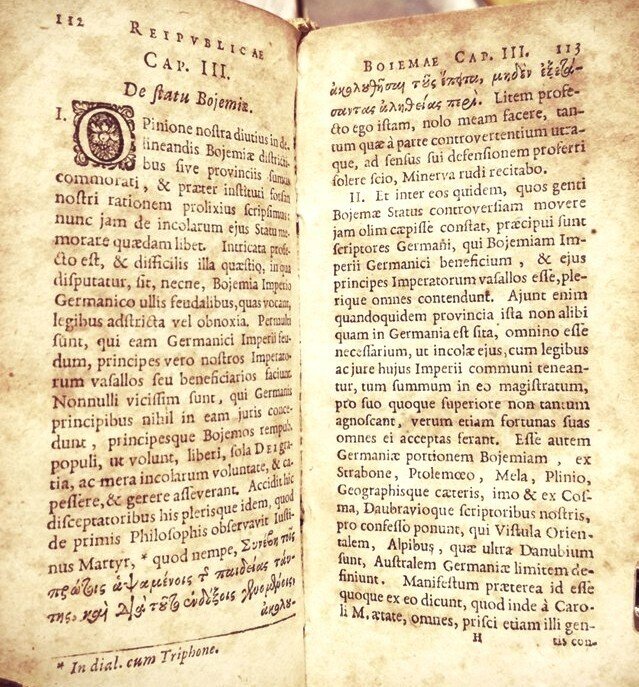 112 REIPVBLICAE
CAP. III.
De ſtatu Bojemiæ.
I. OPinione noſtra diutius in de-
lineandis Bojemiæ diſtricti-
bus ſive provinciis ſumus
commorati, & præter inſtituti forſan
noſtri rationem prolixius ſcripſimus:
nunc jam de incolarum ejus Statu me-
morare quædam libet. Intricata profe-
cto eſt, & difficilis illa quæſtio, in qua
diſputatur, ſit, necne, Bojemia Imperio
Germanico ullis feudalibus, quas vocant,
legibus adſtricta vel obnoxia. Permulti
ſunt, qui eam Germanici Imperii feu-
dum, principes vero noſtros Imperato-
rum vaſallos ſeu beneficiarios faciunt.
Nonnulli viciſſim ſunt, qui Germanis
principibus nihil in eam juris conce-
dunt, principesque Bojemos rempub.
populi, ut volunt, liberi, ſola DEI gra-
tia, ac mera incolarum voluntate, & ca-
peſſere, & gerere aſſeverant. Accidit hic
diſceptatoribus his pleriſque idem, quod
de primis Philoſophis obſervavit Iuſti-
nus Martyr, * quod nempe, Συνέβη τῆς
πρώτοις ἁψαμένοις τ παιδείας ταύ-
της, καὶ Διὰ τοῦτο ἐνδόξοις γενομένοις,
ἀκολου-
* In dial. cum Triphone.
BOJEMAE CAP. III. 113
ἀκολουθῆσαι τοὺς ἔπειτα, μηδὲν ἐξετά-
σαντας ἀληθείας περὶ. Litem profe-
cto ego iſtam, nolo meam facere, tan-
tum quæ à parte controvertentium utra-
que, ad ſenſus ſui defenſionem proferri
ſolere ſcio, Minerva rudi recitabo.
II. Et inter eos quidem, quos genti
Bojemæ Status controverſiam movere
jam olim cæpiſſe conſtat, præcipui ſunt
ſcriptores Germani, qui Bojemiam Im-
perii Germanici beneficium, & ejus
principes Imperatorum vaſallos eſſe, ple-
rique omnes contendunt. Ajunt enim
quandoquidem provincia iſta non alibi
quam in Germania eſt ſita, omnino eſſe
neceſſarium, ut incolæ ejus, cum legibus
ac jure hujus Imperii communi tenean-
tur, tum ſummum in eo magiſtratum,
pro ſuo quoque ſuperiore non tantum
agnoſcant, verum etiam fortunas ſuas
omnes ei acceptas ferant. Eſſe autem
Germaniæ portionem Bojemiam, ex
Strabone, Ptolemœo, Mela, Plinio,
Geographisque cæteris, imo & ex Coſ-
ma, Daubravioque ſcriptoribus noſtris,
pro confeſſo ponunt, qui Viſtula Orien-
talem, Alpibus, quæ ultra Danubium
ſunt, Auſtralem Germaniæ limitem de-
finiunt. Manifeſtum præterea id eſſe
quoque ex eo dicunt, quod inde à Caro-
li M. ætate, omnes, priſci etiam illi gen-
H tis con-